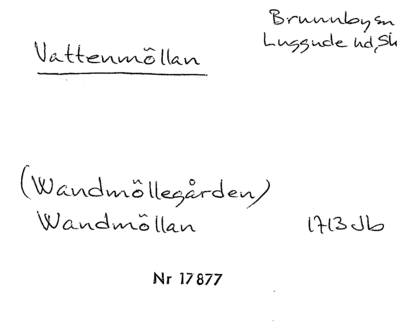 Brunnby sn
Luggude hd, Sk
Vattenmöllan
(Wandmöllegården)
Wandmöllan 1713 Jb
Nr 17877